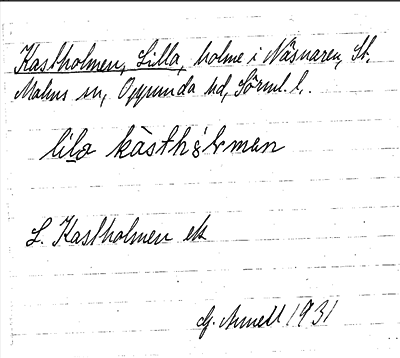 Kastholmen, Lilla, holme i Näsnaren, St.
Malms sn, Oppunda hd, Sörml. l.
lila kàsthòlman
L. Kastholmen ek
G. Annell 1931